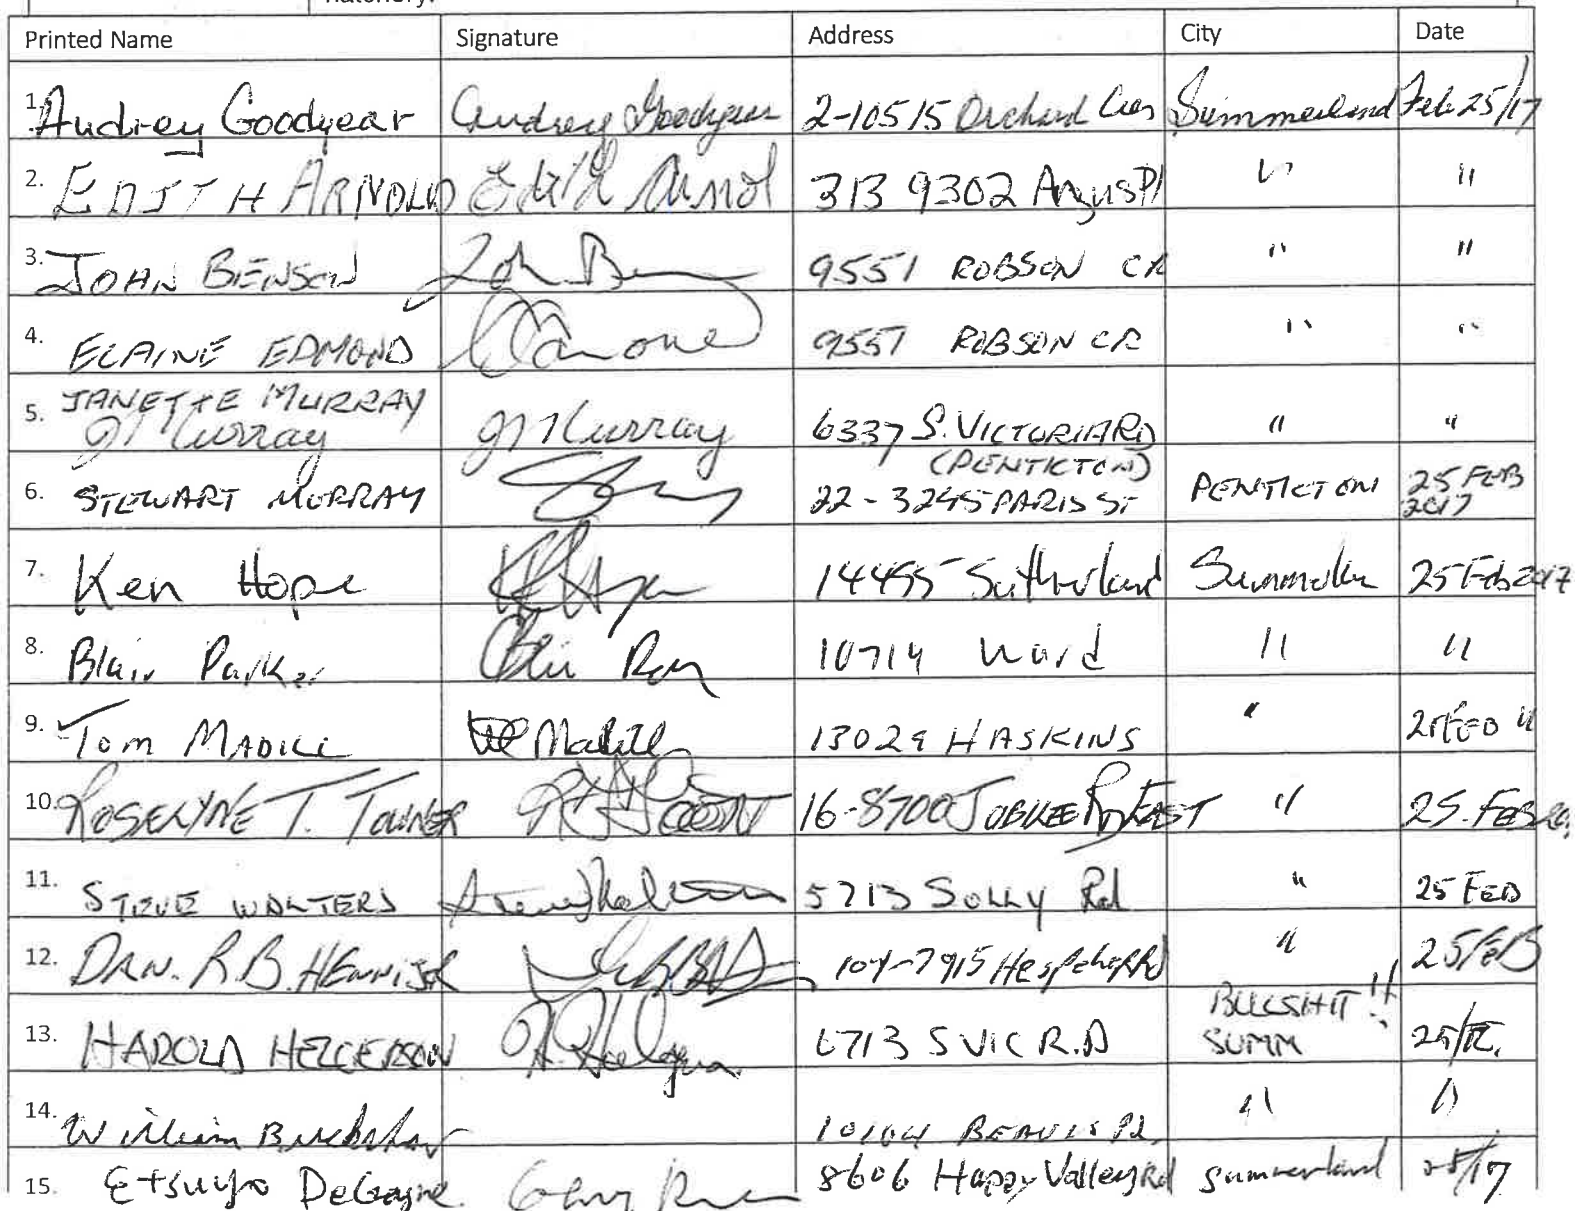 Printed Name Signature Address City Date
1. Audrey Goodyear Audrey Goodyear 2-10515 Orchard Cres Summerland Feb 25/17
2. EDITH ARNOLD Edith Arnol 313 9302 Angus Pl " "
3. JOHN BENSON 9551 ROBSON CR " "
4. ELAINE EDMOND 9557 ROBSON CR " "
5. JANETTE MURRAY
JMurray JMurray 6337 S. VICTORIA RD " "
(PENTICTON)
6. STEWART MURRAY 22-3245 PARIS ST PENTICTON 25 FEB
2017
7. Ken Hope 14495 Sutherland 25 Feb 2017
8. Blair Parker 10714 Ward " "
9. Tom MADILL 13029 HASKINS " FEB "
10. ROSELYNE T. TOWNER 16-8700 JUBILEE RD EAST " 25. FEB
11. STEVE WALTERS 5713 SOLLY Rd " 25 FEB
12. DAN. R.B. 104-7915 " 25/FEB
BULLSHIT!!
13. HAROLD HELGERSON H. Helgerson 6713 S VIC R.D SUMM
14. William " "
15. Etsuyo DeGagne 8606 Happy Valley Rd Summerland